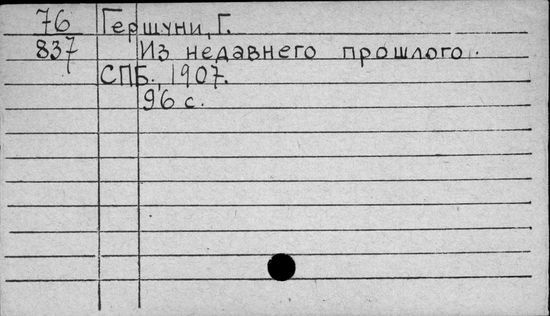 76 Гершуни, Г.
837 Из недавнего прошлого.
СПБ., 1907.
96 с.